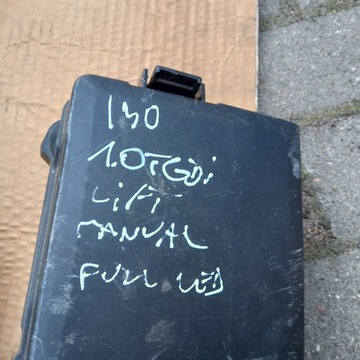 I30
1.0TGDi
LiFT
MANUAL
FULL LED